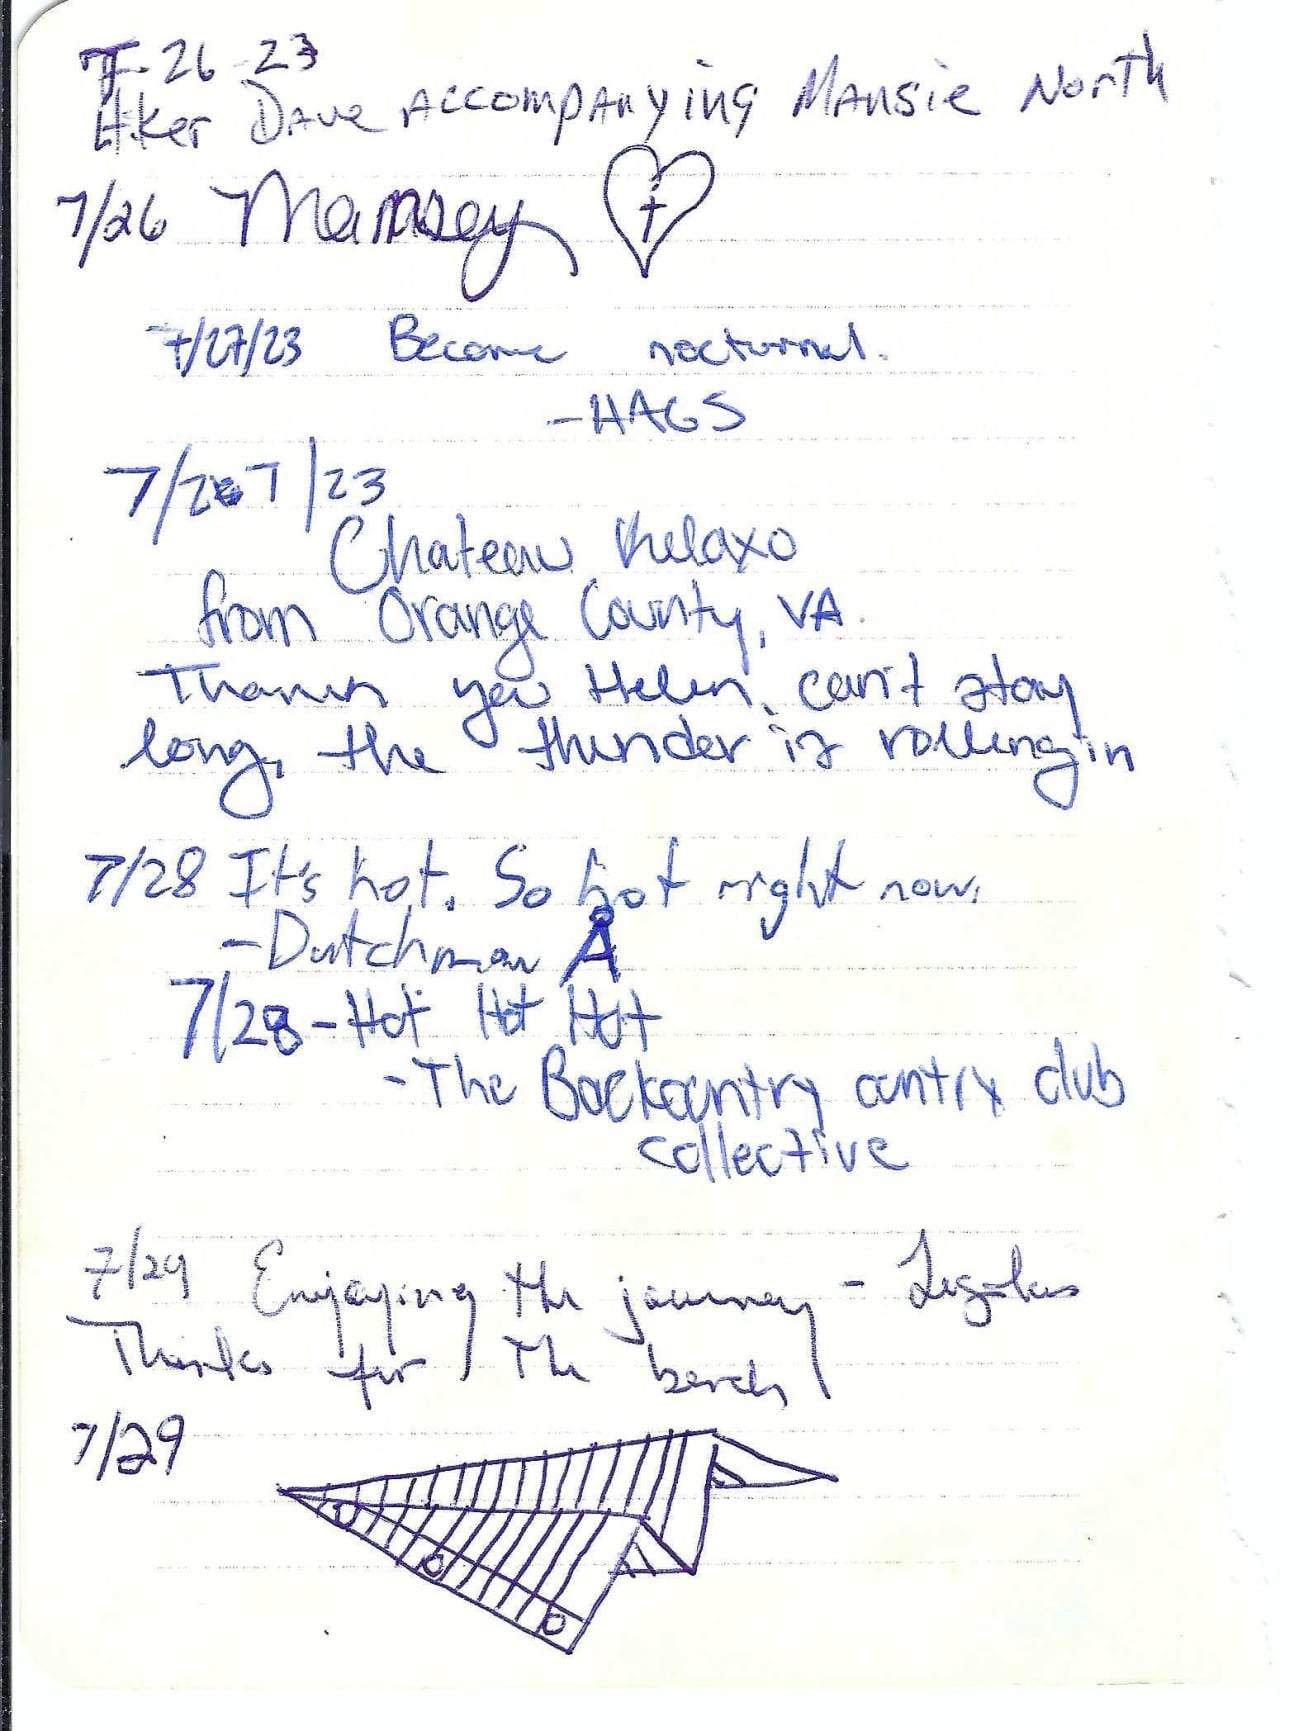 7-26-23
Hiker Dave Accompanying Mansie North
7/26 Mamsey
7/27/23 Become nocturnal.
-HAGS
7/27/23
Chateau Relaxo
from Orange County, VA.
Thank you Helen, can't stay
long, the thunder is rolling in
7/28 It's hot. So hot right now.
-Dutchman
7/28-Hot Hot Hot
-The Backcontry contry club
collective
7/29 Enjoying the journey - Legolas
Thanks for the bench
7/29